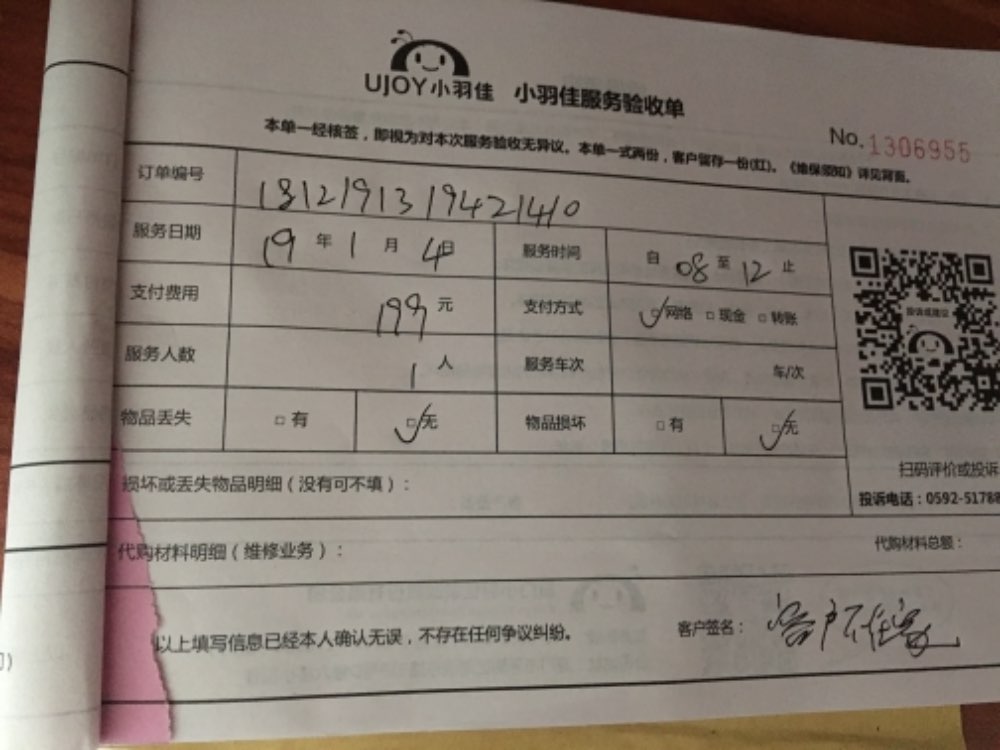 UJOY小羽佳 小羽佳服务验收单
No. 1306955
本单一经核签，即视为对本次服务验收无异议。本单一式两份，客户留存一份(红)。《维保须知》详见背面。
订单编号 1812191319421410
服务日期 19 年 1 月 4 日 服务时间 自 08 至 12 止
支付费用 199 元 支付方式 网络 现金 转账
服务人数 1 人 服务车次 车/次
物品丢失 有 无 物品损坏 有 无
投诉或建议
扫码评价或投诉
投诉电话：0592-51788
损坏或丢失物品明细（没有可不填）：
代购材料明细（维修业务）： 代购材料总额：
以上填写信息已经本人确认无误，不存在任何争议纠纷。 客户签名： 客户不在家